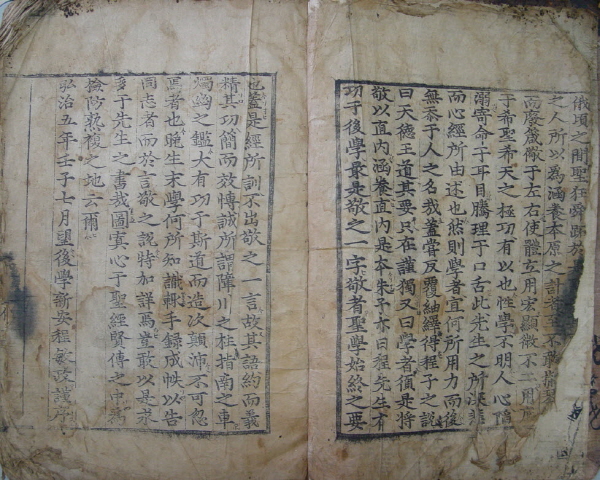 俄頃之間聖狂舜蹠於
之人所以為涵養本原之計者至不敢
而處箴儆于左右使體立用宏顯微不二用底
于希聖希天之極功有以也性學不明人心陷
溺寄命于耳目騰理于口舌此先生之所深悲
而心經所由述也然則學者宜何所用力而後
無忝于人之名哉蓋嘗反覆紬繹得程子之說
曰天德王道其要只在謹獨又曰學者須是將
敬以直內涵養直內是本朱子亦曰程先生有
功于後學最是敬之一字敬者聖學始終之要
也蓋是經所訓不出敬之一言故其語約而義
精其功簡而效博誠所謂障川之柱指南之車
燭幽之鑑大有功于斯道而造次顛沛不可忽
焉者也晚生末學何所知識輒手錄成帙以告
同志者而於言敬之說特加詳焉豈敢以是求
多于先生之書哉圖寘心于聖經賢傳之中為
檢防熟複之地云爾
弘治五年壬子七月望後學新安程敏政謹序